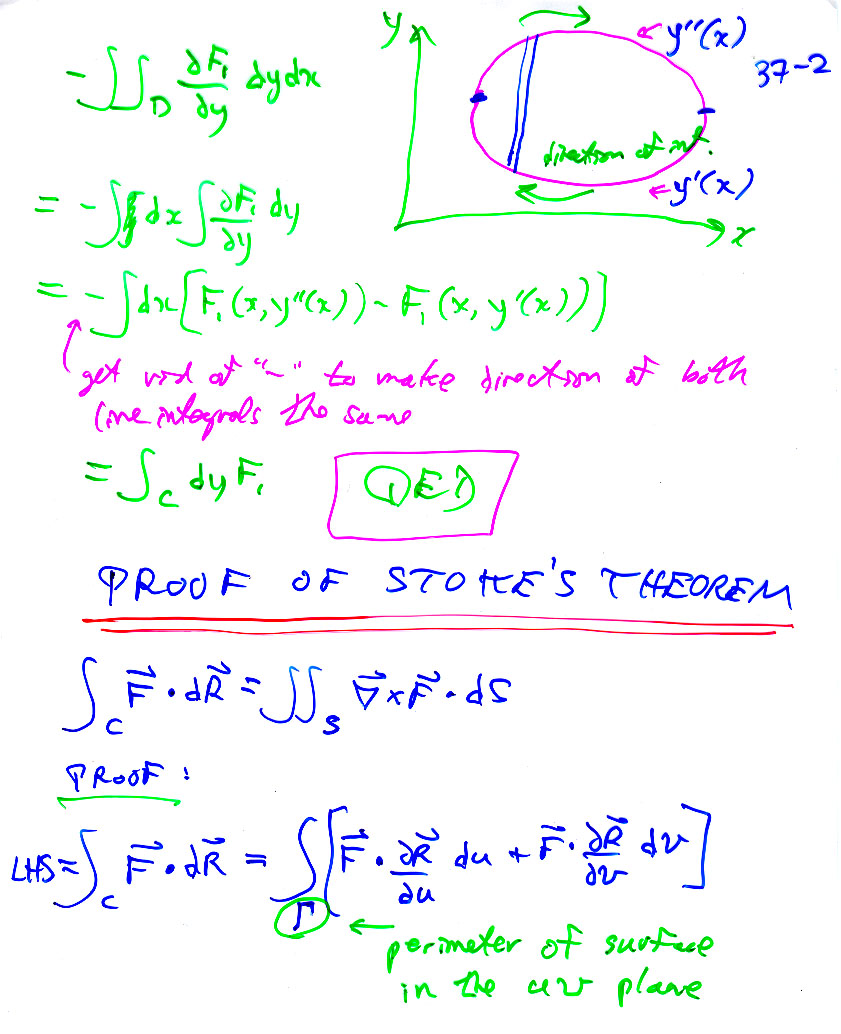 37-2
y
y''(x)
direction of int.
y'(x)
x
-∬_D ∂F₁/∂y dydx
= -∫dx ∫∂F₁/∂y dy
= -∫dx[F₁(x,y''(x)) - F₁(x,y'(x))]
get rid of "-" to make direction of both
line integrals the same
= ∫_C dy F₁
QED
PROOF OF STOKE'S THEOREM
∫_C F⃗ · dR⃗ = ∬_S ∇⃗ x F⃗ · dS
PROOF :
LHS = ∫_C F⃗ · dR⃗ = ∫_Γ [F⃗ · ∂R⃗/∂u du + F⃗ · ∂R⃗/∂v dv]
perimeter of surface
in the uv plane